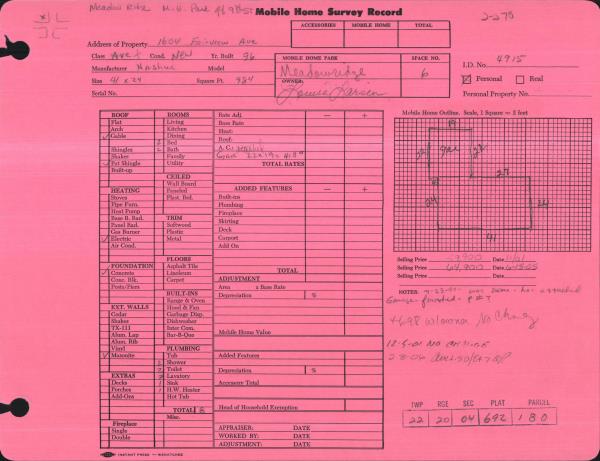 Meadow Ridge M.H. Park
Mobile Home Survey Record
2-275
ACCESSORIES MOBILE HOME TOTAL
Address of Property 1604 Fairview Ave
Class Ave + Cond. NEW Yr. Built 96
Manufacturer Nashua Model
Size 41 x 24 Square Ft. 984
Serial No.
MOBILE DOME PARK SPACE NO.
Meadowridge 6
OWNER:
Louise Larsen
I.D. No. 4915
Personal Real
Personal Property No.
ROOF
Flat
Arch
✓ Gable
Shingles
Shaker
✓ Pat Shingle
Built-up
HEATING
Stoves
Pipe Furn.
Heat Pump
Base B. Rad.
Panel Rad.
Gas Burner
✓ Electric
Air Cond.
FOUNDATION
✓ Concrete
Conc. Blk.
Posts/Piers
EXT. WALLS
Cedar
Shaker
TX-111
Alum. Lap
Alum. Rib
Vinyl
✓ Masonite
EXTRAS
Decks 1
Porches 1
Add-Ons
Fireplace
Single
Double
ROOMS
Living
Kitchen
Dining
2 Bed
2 Bath
Family
Utility
CEILED
Wall Board
Paneled
Plast. Bed.
TRIM
Softwood
Plastic
Metal
FLOORS
Asphalt Tile
Linoleum
Carpet
BUILT-INS
Range & Oven
Hood & Fan
Garbage Disp.
Dishwasher
Inter Com.
Bar-B-Que
PLUMBING
Tub
Shower
2 Toilet
2 Lavatory
1 Sink
1 H.W. Heater
Hot Tub
TOTAL 8
Misc.
Rate Adj. − +
Base Rate
Heat:
Roof:
TOTAL RATES
ADDED FEATURES − +
Built-ins
Plumbing
Fireplace
Skirting
Deck
Carport
Add On
TOTAL
ADJUSTMENT
Area x Base Rate
Depreciation %
Mobile Home Value
Added Features
Depreciation %
Accessore Total
Head of Household Exemption
APPRAISER: DATE
WORKED BY: DATE
ADJUSTMENT: DATE
Mobile Home Outline. Scale, 1 Square = 2 feet
19
22
22
27
24
24
41
Selling Price Date 11/01
Selling Price 64,900 Date
Selling Price Date
NOTES:
Garage
No Chang
12-5-01 No
TWP RGE SEC PLAT PARCEL
22 20 04 692 180
INSTANT PRESS — WENATCHEE